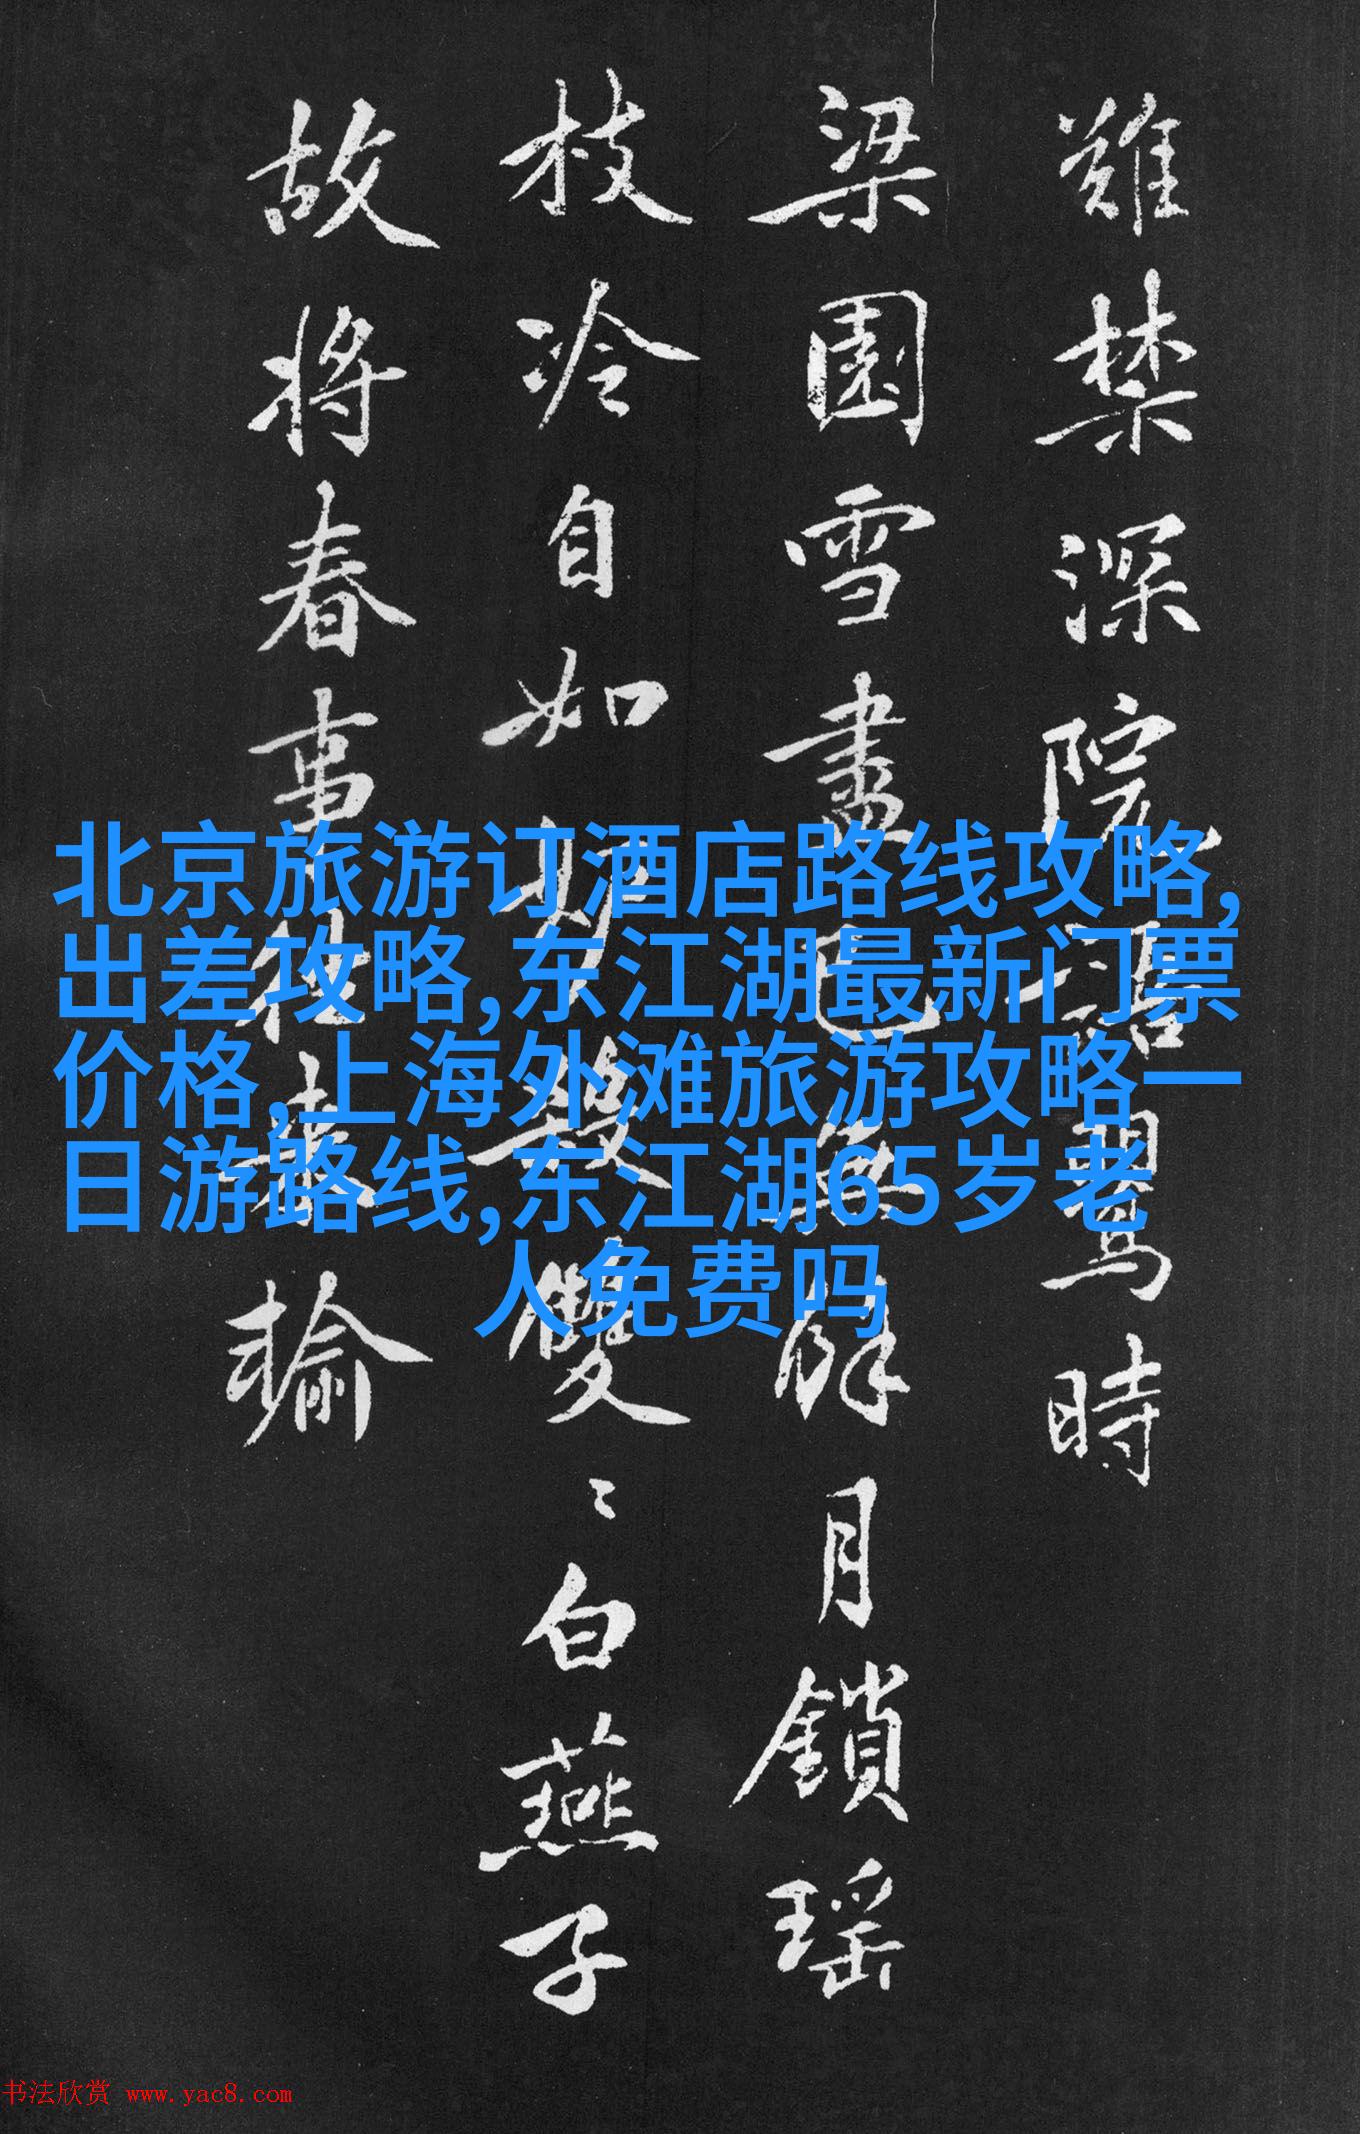 難禁深院語鶯時
梁園雪盡已無月鎖瑤
枝冷自如雙〻白燕子
故將春事輸
北京旅游订酒店路线攻略,
出差攻略,东江湖最新门票
价格,上海外滩旅游攻略一
日游路线,东江湖65岁老
人免费吗
书法欣赏 www.yac8.com